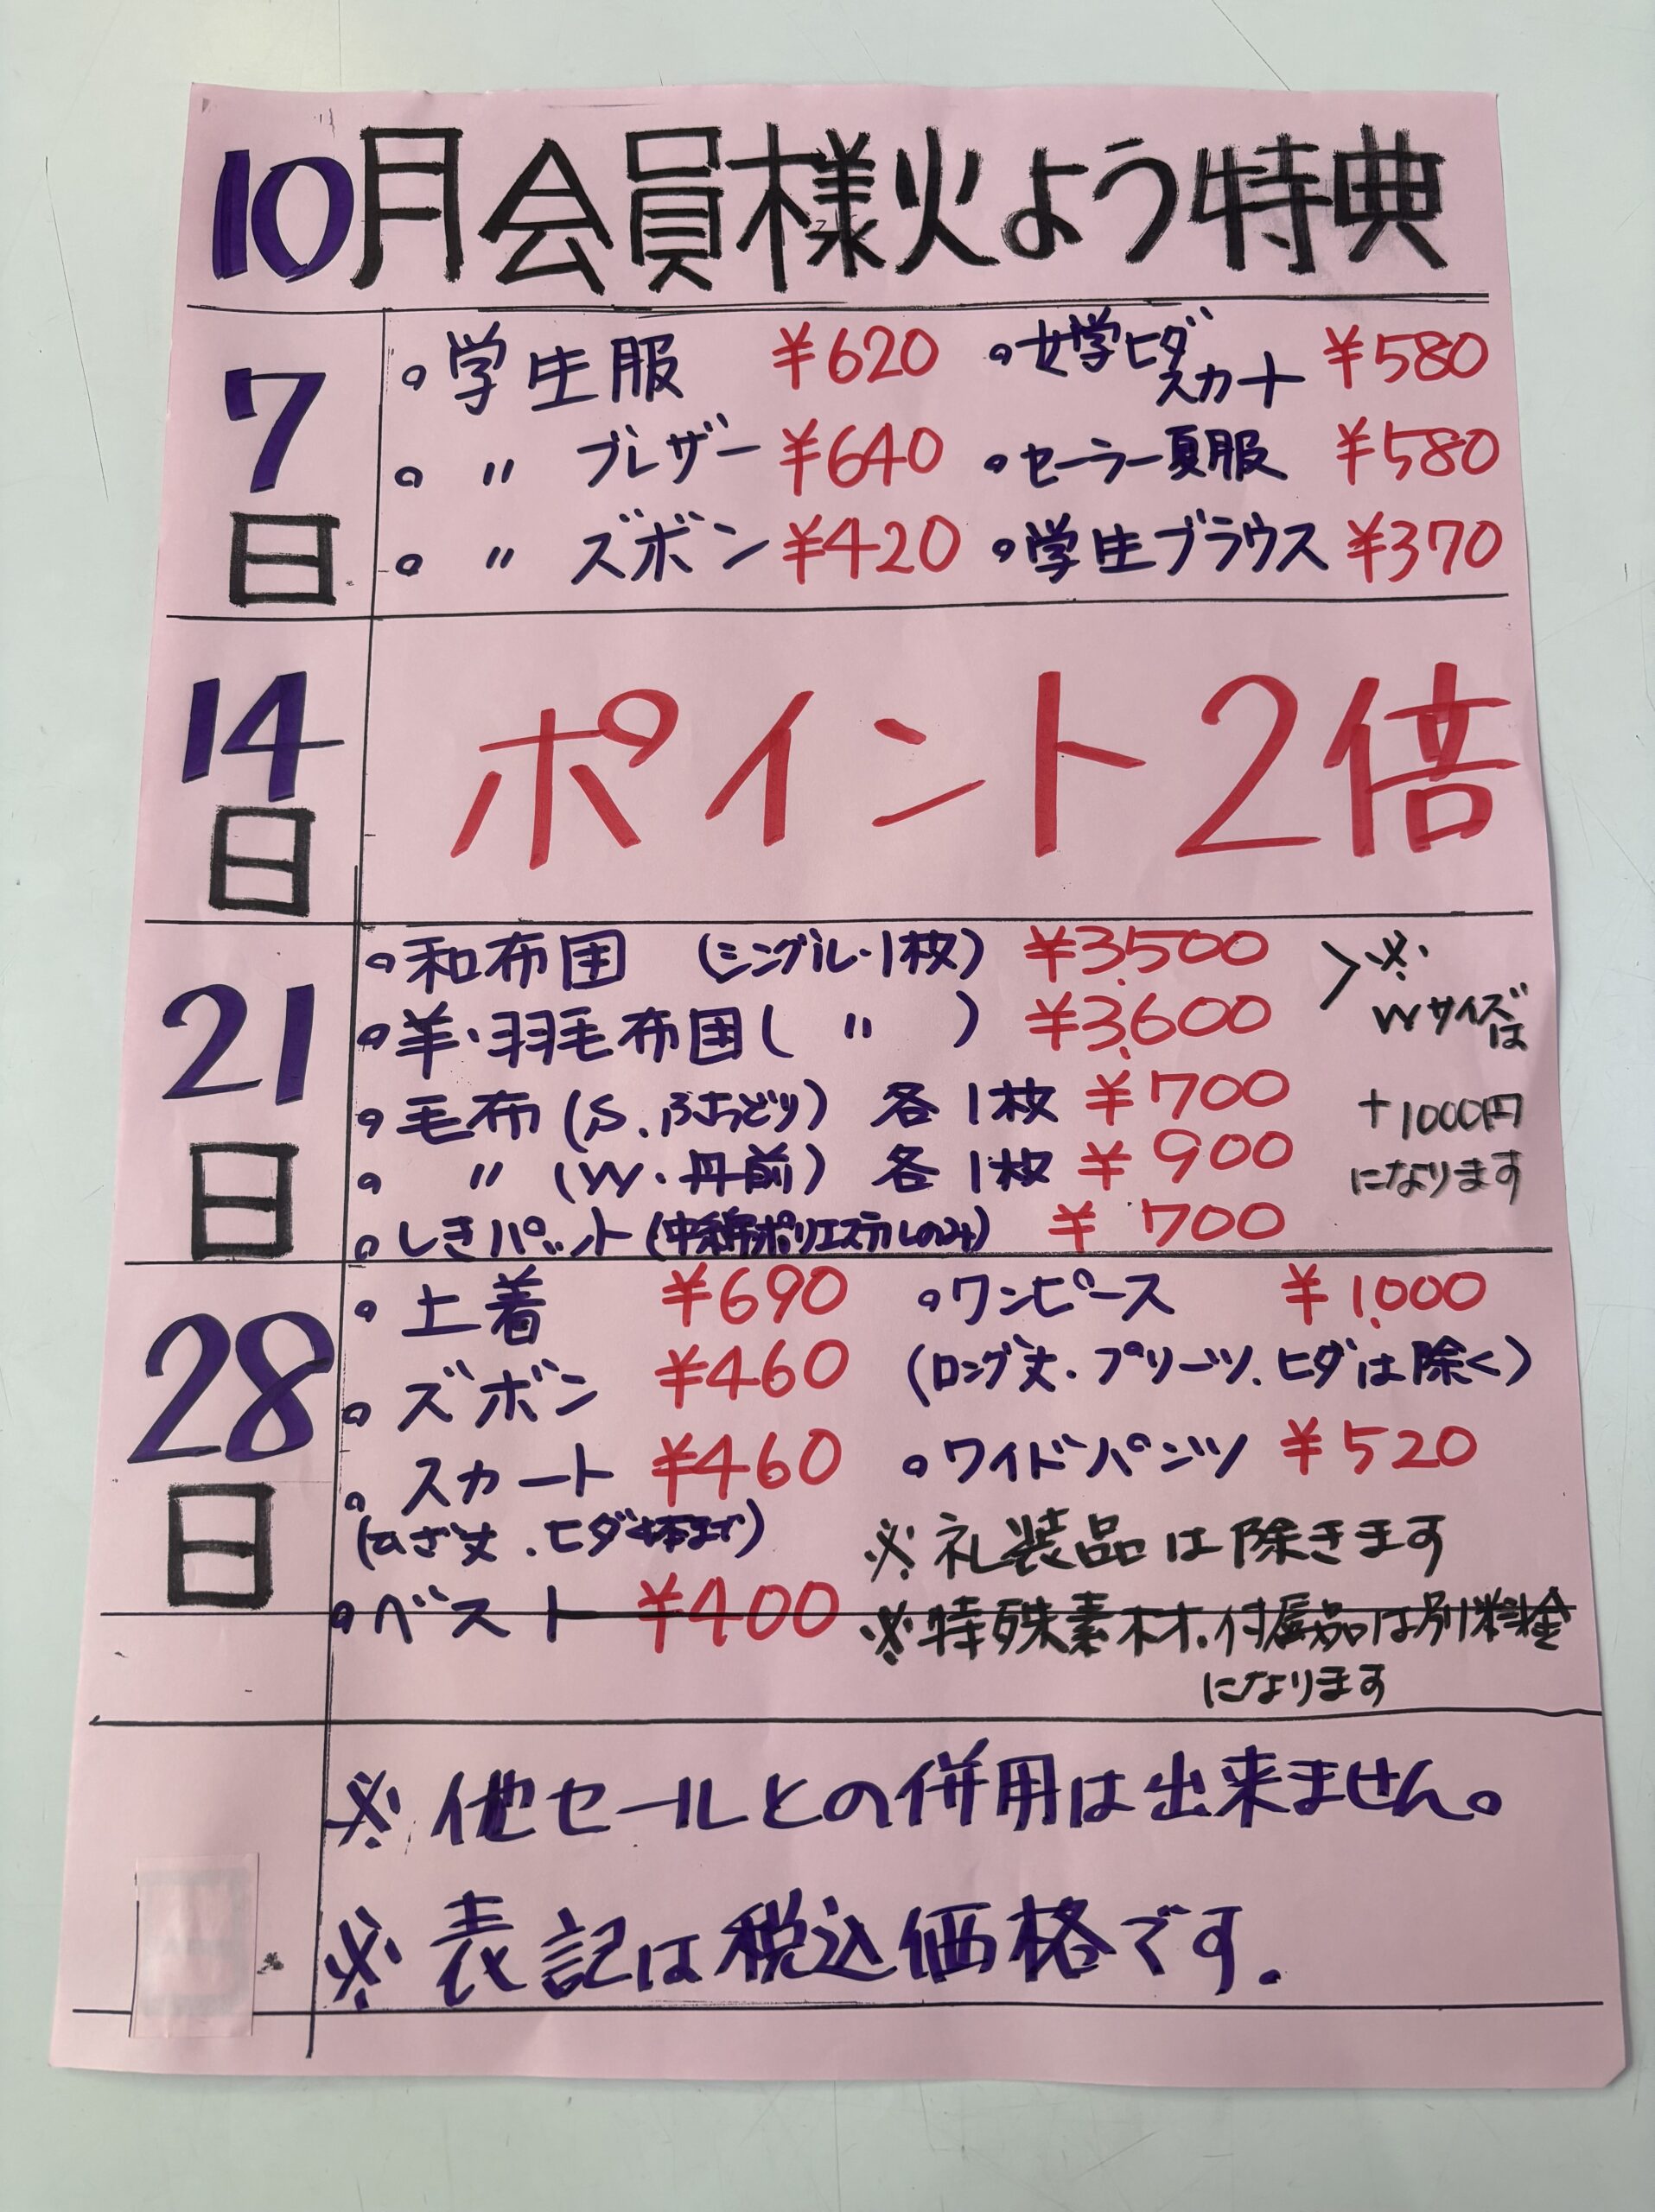 10月会員様火よう特典
7日
・学生服 ¥620 ・女学ヒダスカート ¥580
・〃 ブレザー ¥640 ・セーラー夏服 ¥580
・〃 ズボン ¥420 ・学生ブラウス ¥370
14日
ポイント2倍
21日
・和布団 (シングル・1枚) ¥3,500
・羊・羽毛布団 (〃) ¥3,600
※Wサイズは
+1000円
になります
・毛布 (S、ふちどり) 各1枚 ¥700
・〃 (W・丹前) 各1枚 ¥900
・しきパット (中綿ポリエステルのみ) ¥700
28日
・上着 ¥690 ・ワンピース ¥1,000
・ズボン ¥460 (ロング丈・プリーツ、ヒダは除く)
・スカート ¥460 ・ワイドパンツ ¥520
(ひざ丈、ヒダ本まで)
※礼装品は除きます
・ベスト ¥400 ※特殊素材、付属品は別料金
になります
※他セールとの併用は出来ません。
※表記は税込価格です.